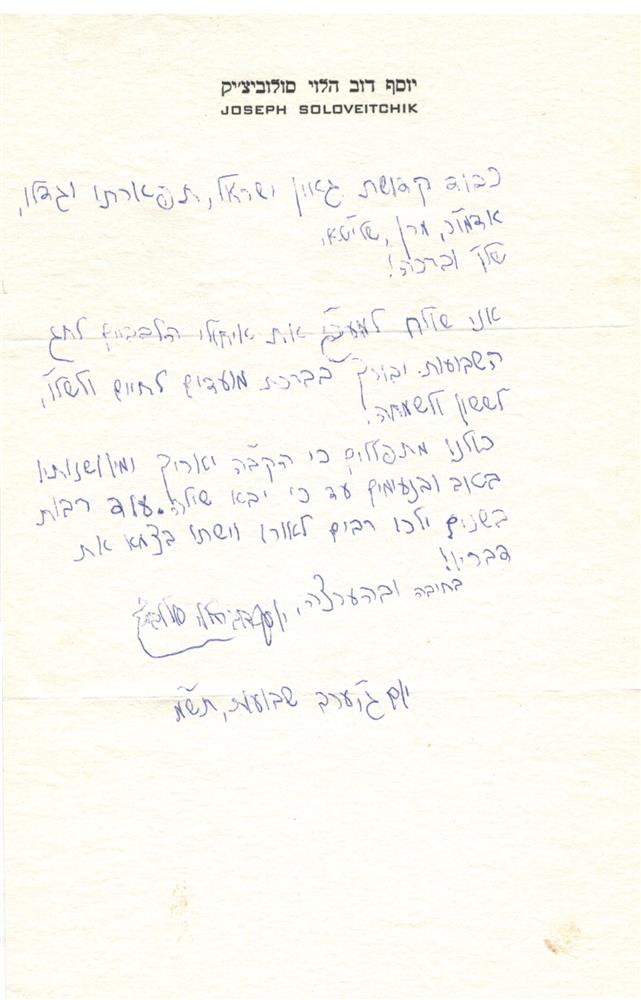 יוסף דוב הלוי סולוביצ׳יק
JOSEPH SOLOVEITCHIK
כבוד קדושת גאון ישראל, תפארתו וגדלו,
אדמו״ר, מרן, שליט״א,
שלו׳ וברכה!
אני שולח את איחולי הלבביים לחג
השבועות. יבורך בברכת מועדים לחיים ולשלו׳,
לששון ולשמחה!
כולנו מתפללים כי הקב״ה יאריך ימיו ושנותיו
בטוב ובנעימים עד כי יבא שילה. עוד רבות
בשנים ילכו רבים לאורו וישתו בצמא את
דבריו!
בחיבה ובהערצה, יוסף דוב הלוי סולוביצ׳יק
יום ג׳, ערב שבועות, תש״מ